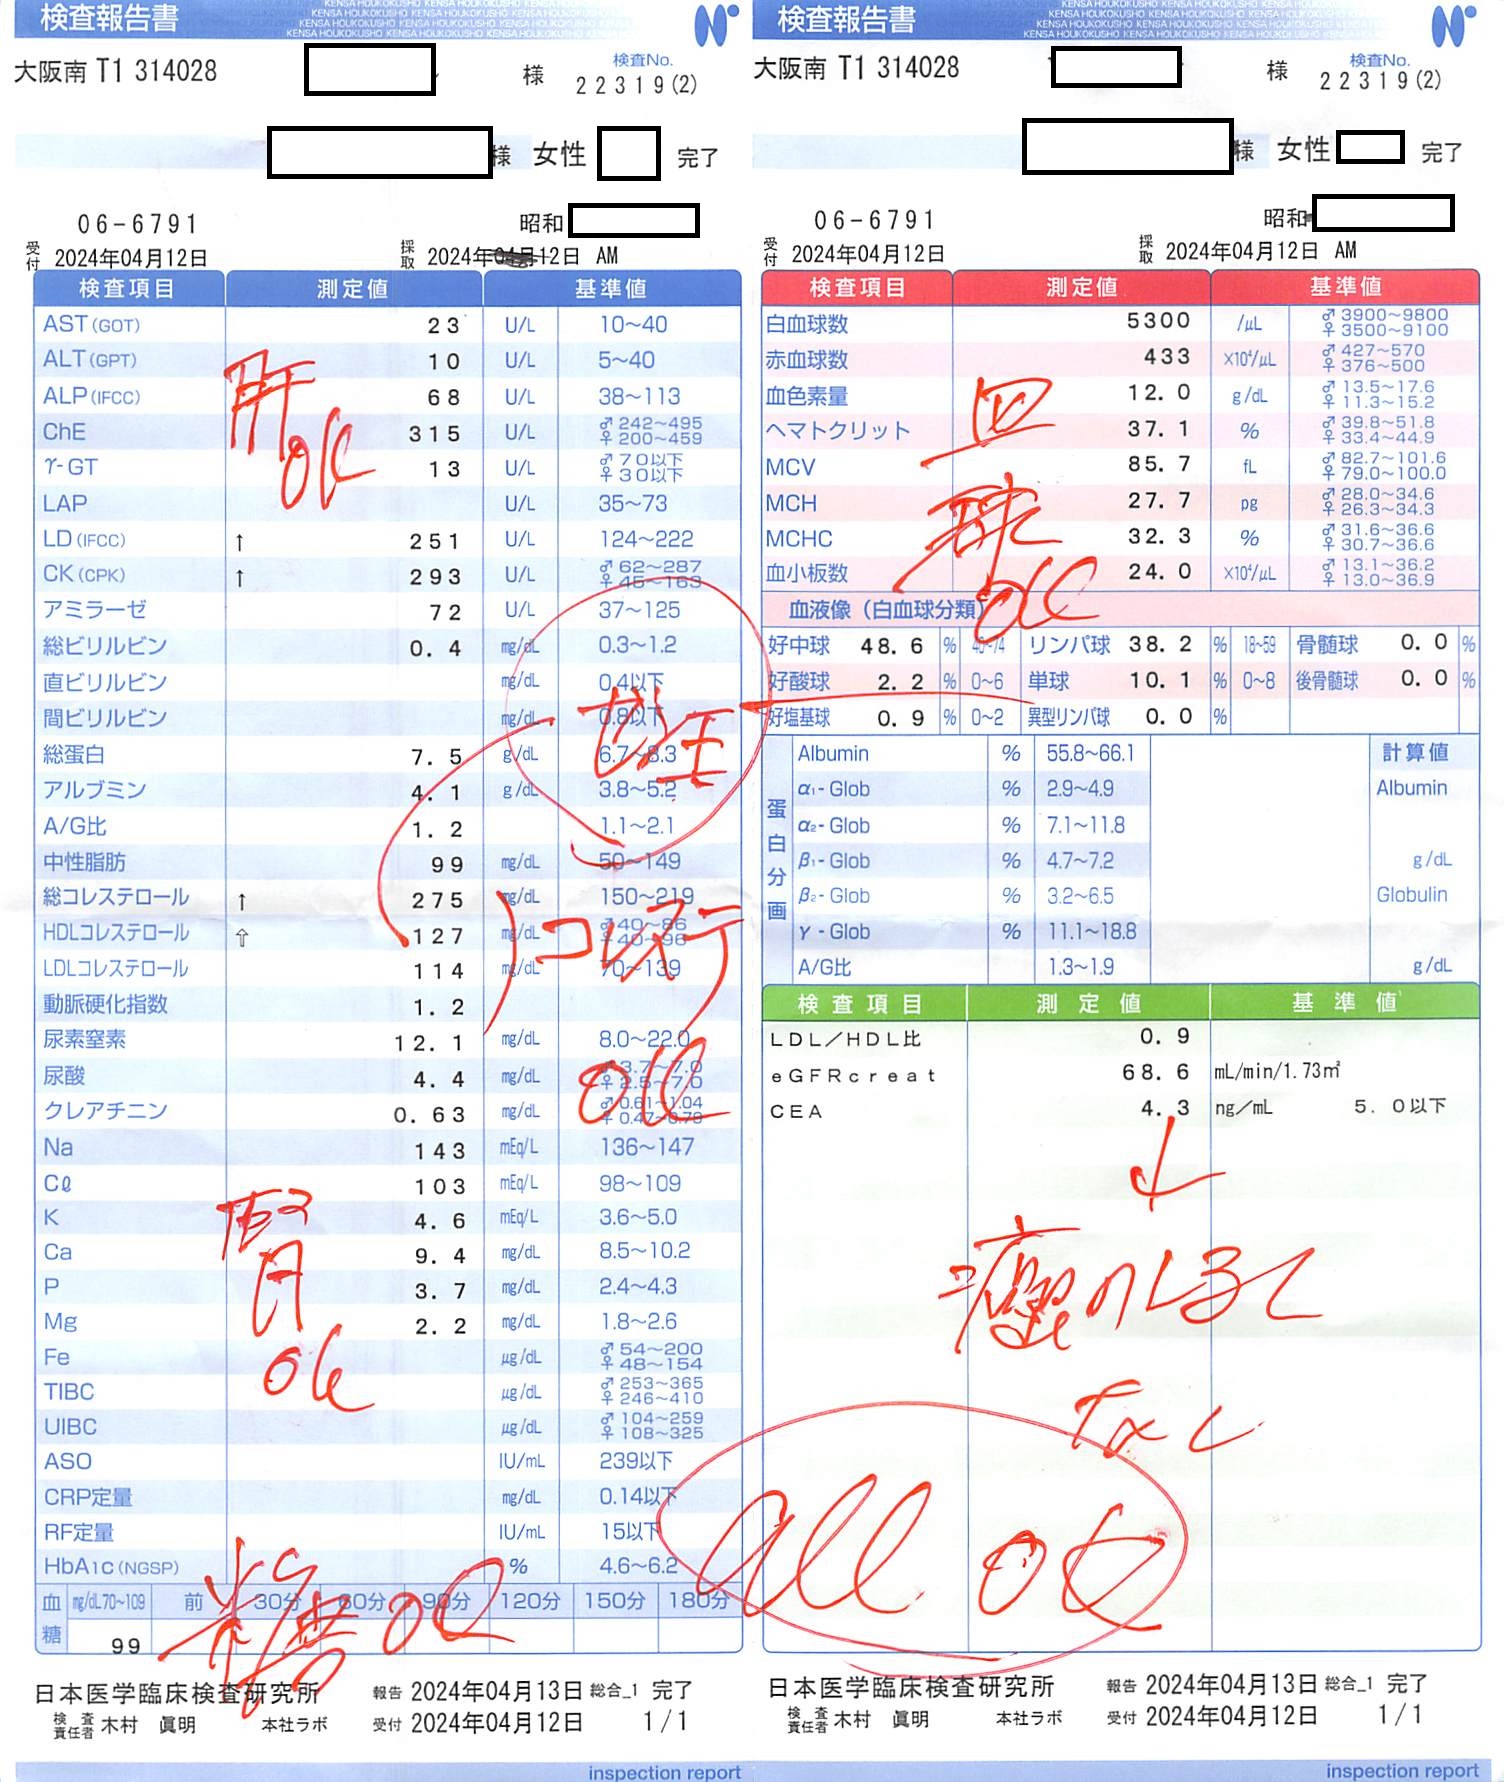 検査報告書
KENSA HOUKOKUSHO KENSA HOUKOKUSHO KENSA HOUKOKUSHO
大阪南 T1 314028
様
検査No.
22319(2)
様 女性 完了
06-6791
昭和
受付 2024年04月12日
採取 2024年 12日 AM
検査項目 測定値 基準値
AST(GOT) 23 U/L 10~40
ALT(GPT) 10 U/L 5~40
ALP(IFCC) 68 U/L 38~113
ChE 315 U/L ♂242~495 ♀200~459
γ-GT 13 U/L ♂70以下 ♀30以下
LAP U/L 35~73
LD(IFCC) ↑ 251 U/L 124~222
CK(CPK) ↑ 293 U/L ♂62~287 ♀45~163
アミラーゼ 72 U/L 37~125
総ビリルビン 0.4 mg/dL 0.3~1.2
直ビリルビン mg/dL 0.4以下
間ビリルビン mg/dL 0.8以下
総蛋白 7.5 g/dL 6.7~8.3
アルブミン 4.1 g/dL 3.8~5.2
A/G比 1.2 1.1~2.1
中性脂肪 99 mg/dL 50~149
総コレステロール ↑ 275 mg/dL 150~219
HDLコレステロール ⇧ 127 mg/dL ♂40~86 ♀40~96
LDLコレステロール 114 mg/dL 70~139
動脈硬化指数 1.2
尿素窒素 12.1 mg/dL 8.0~22.0
尿酸 4.4 mg/dL ♂3.7~7.0 ♀2.5~7.0
クレアチニン 0.63 mg/dL ♂0.61~1.04 ♀0.47~0.79
Na 143 mEq/L 136~147
Cℓ 103 mEq/L 98~109
K 4.6 mEq/L 3.6~5.0
Ca 9.4 mg/dL 8.5~10.2
P 3.7 mg/dL 2.4~4.3
Mg 2.2 mg/dL 1.8~2.6
Fe μg/dL ♂54~200 ♀48~154
TIBC μg/dL ♂253~365 ♀246~410
UIBC μg/dL ♂104~259 ♀108~325
ASO IU/mL 239以下
CRP定量 mg/dL 0.14以下
RF定量 IU/mL 15以下
HbA1c(NGSP) % 4.6~6.2
血糖 mg/dL70~109 前 30分 60分 90分 120分 150分 180分
99
肝OK
コレステ
OK
腎
OK
糖OK
日本医学臨床検査研究所 報告 2024年04月13日 総合_1 完了
検査責任者 木村 眞明 本社ラボ 受付 2024年04月12日 1/1
inspection report
検査報告書
KENSA HOUKOKUSHO KENSA HOUKOKUSHO KENSA HOUKOKUSHO
大阪南 T1 314028
様
検査No.
22319(2)
様 女性 完了
06-6791
昭和
受付 2024年04月12日
採取 2024年04月12日 AM
検査項目 測定値 基準値
白血球数 5300 /μL ♂3900~9800 ♀3500~9100
赤血球数 433 ×10⁴/μL ♂427~570 ♀376~500
血色素量 12.0 g/dL ♂13.5~17.6 ♀11.3~15.2
ヘマトクリット 37.1 % ♂39.8~51.8 ♀33.4~44.9
MCV 85.7 fL ♂82.7~101.6 ♀79.0~100.0
MCH 27.7 pg ♂28.0~34.6 ♀26.3~34.3
MCHC 32.3 % ♂31.6~36.6 ♀30.7~36.6
血小板数 24.0 ×10⁴/μL ♂13.1~36.2 ♀13.0~36.9
血液像(白血球分類)
好中球 48.6 % 40~74 リンパ球 38.2 % 18~59 骨髄球 0.0 %
好酸球 2.2 % 0~6 単球 10.1 % 0~8 後骨髄球 0.0 %
好塩基球 0.9 % 0~2 異型リンパ球 0.0 %
蛋白分画
Albumin % 55.8~66.1 計算値
α1-Glob % 2.9~4.9 Albumin
α2-Glob % 7.1~11.8
β1-Glob % 4.7~7.2 g/dL
β2-Glob % 3.2~6.5 Globulin
γ-Glob % 11.1~18.8
A/G比 1.3~1.9 g/dL
検査項目 測定値 基準値
LDL/HDL比 0.9
eGFRcreat 68.6 mL/min/1.73㎡
CEA 4.3 ng/mL 5.0以下
血
球
OK
↓
癌のしるし
なし
all OK
日本医学臨床検査研究所 報告 2024年04月13日 総合_1 完了
検査責任者 木村 眞明 本社ラボ 受付 2024年04月12日 1/1
inspection report